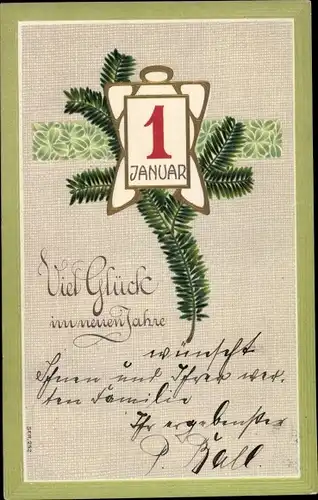 1
JANUAR
Viel Glück
im neuen Jahre
wünscht
Ihnen und Ihrer wer-
ten Familie
Ihr ergebenster
P. Ball.
SER. 252